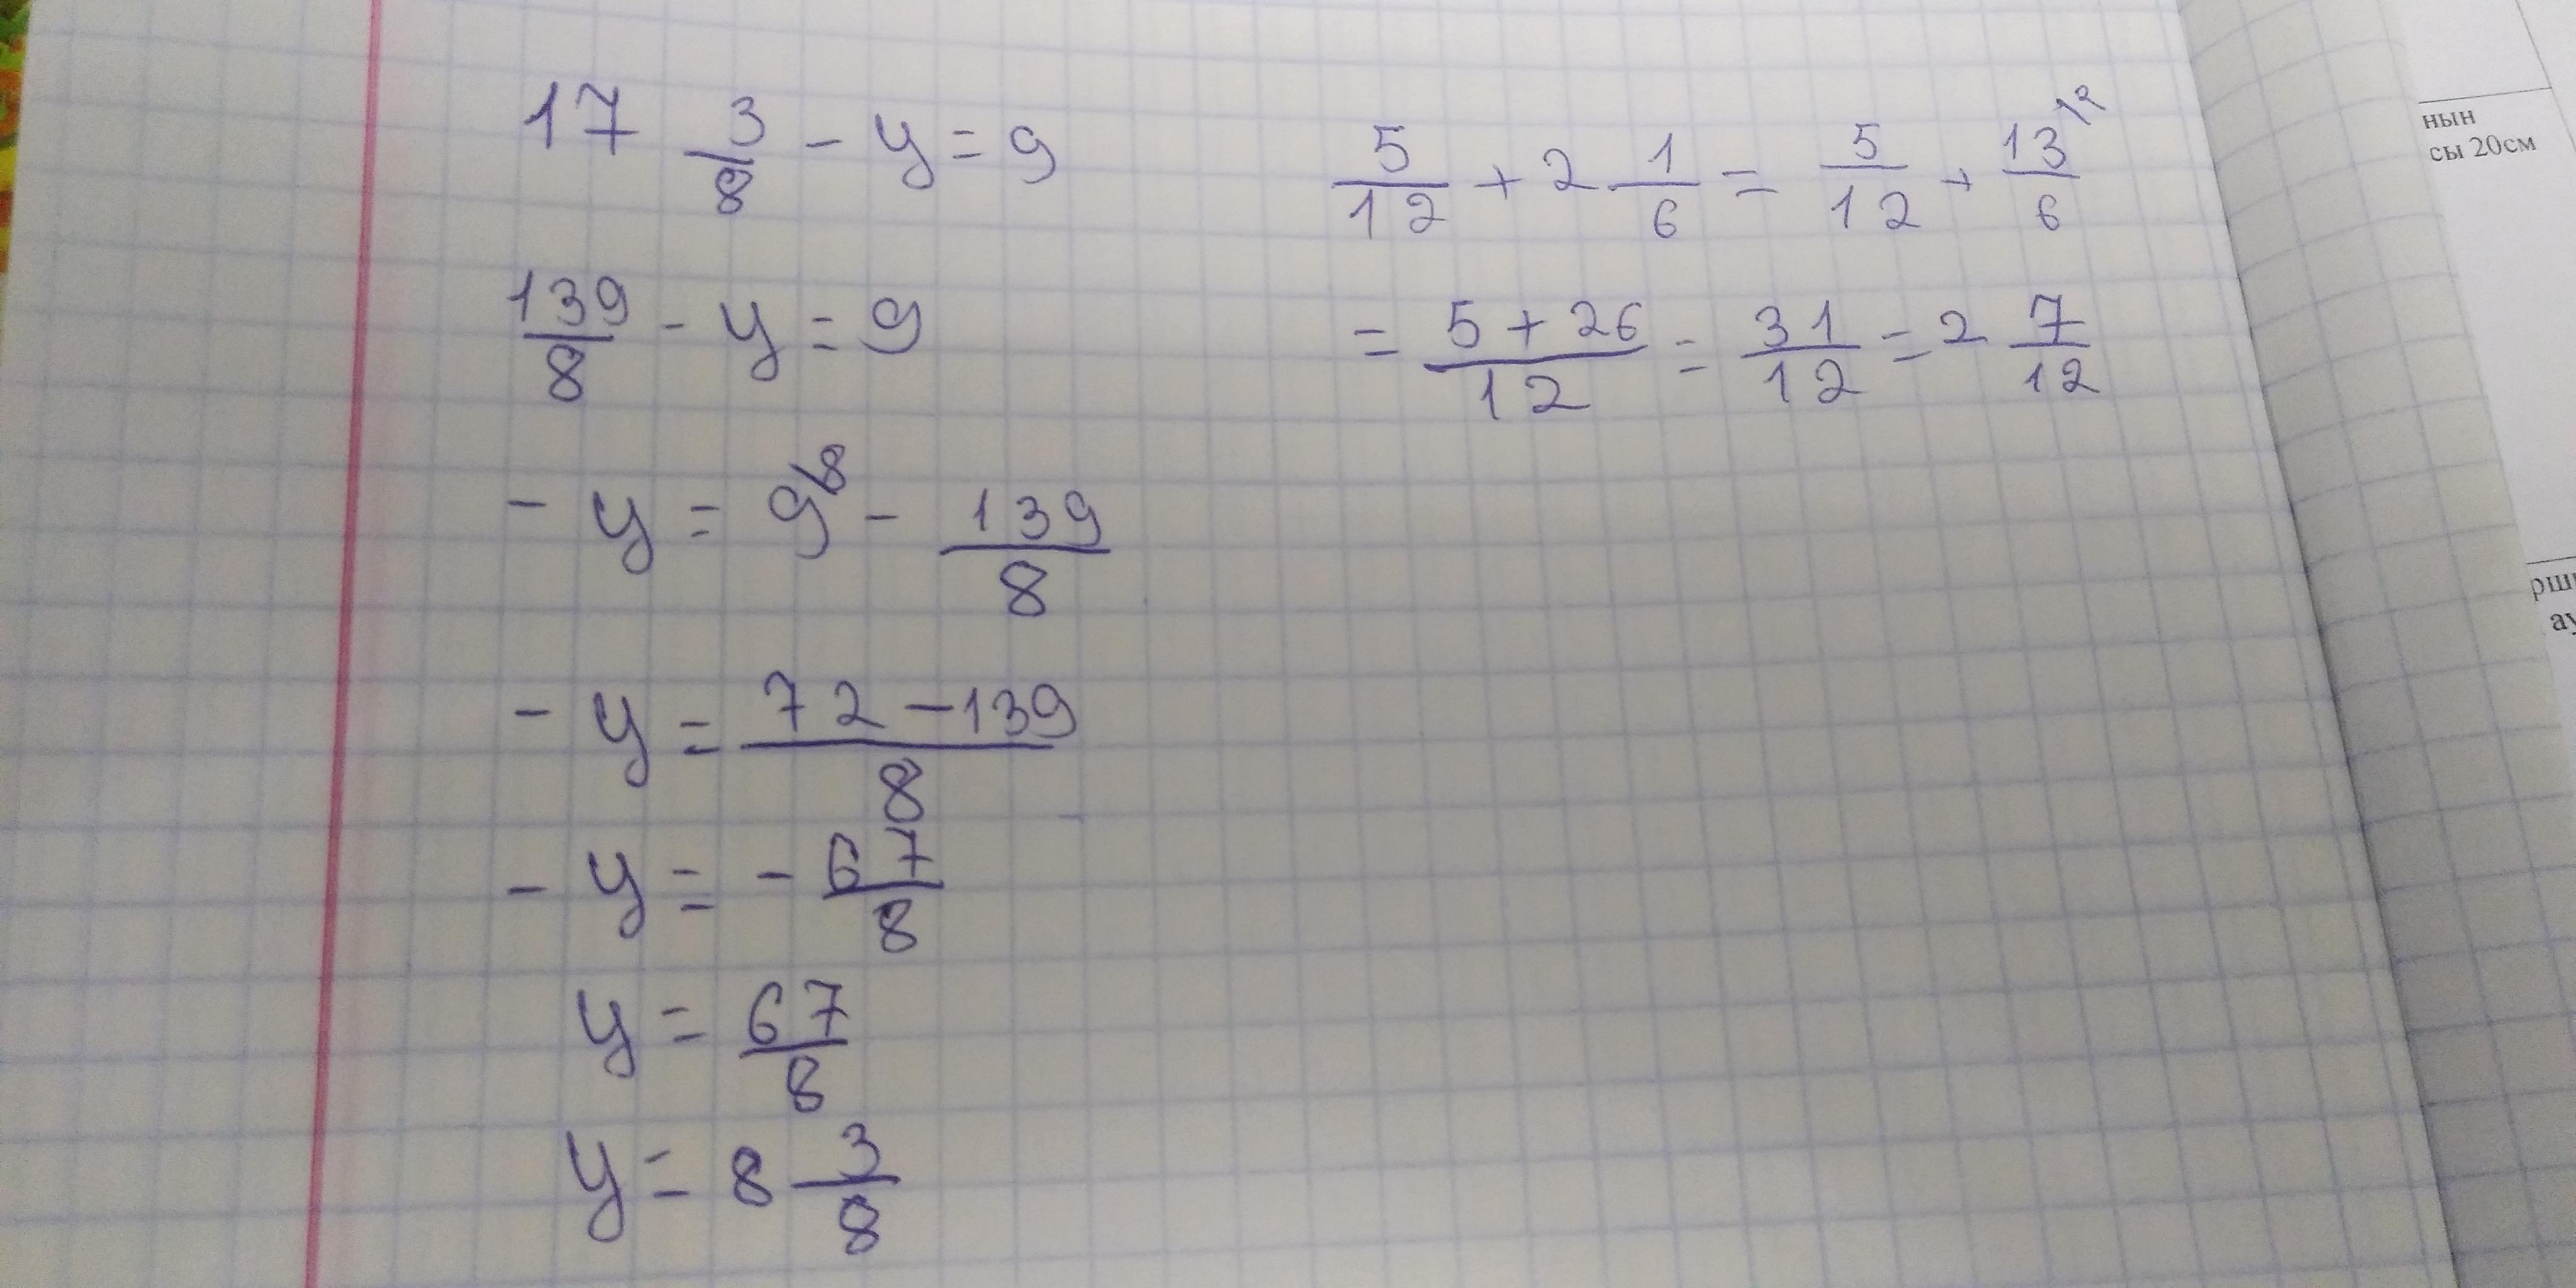 17 3/8 - y = 9
139/8 - y = 9
- y = 9\8 - 139/8
- y = (72 - 139)/8
- y = - 67/8
y = 67/8
y = 8 3/8
5/12 + 2 1/6 = 5/12 + 13\2/6
= (5 + 26)/12 = 31/12 = 2 7/12
нын
сы 20см